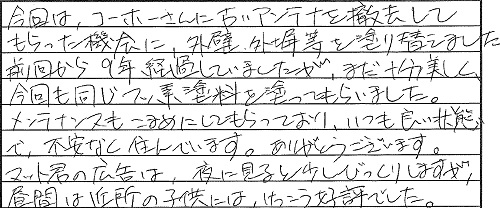 今回は、コーホーさんに古いアンテナを撤去して
もらった機会に、外壁、外塀等を塗り替えました
前回から9年経過していましたが、まだ十分美しく、
今回も同じフッ素塗料を塗ってもらいました。
メンテナンスもこまめにしてもらっており、いつも良い状態
で、不安なく住んでいます。ありがとうございます。
マット君の広告は、夜に見ると少しびっくりしますが、
昼間は近所の子供には、けっこう好評でした。